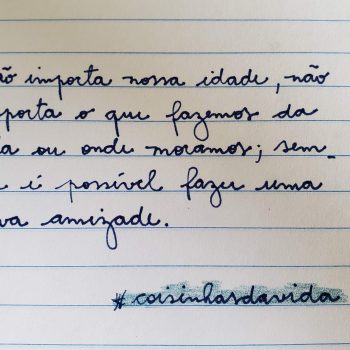 ão importa nossa idade, não
porta o que fazemos da
a ou onde moramos; sem-
e é possível fazer uma
va amizade.
#coisinhasdavida